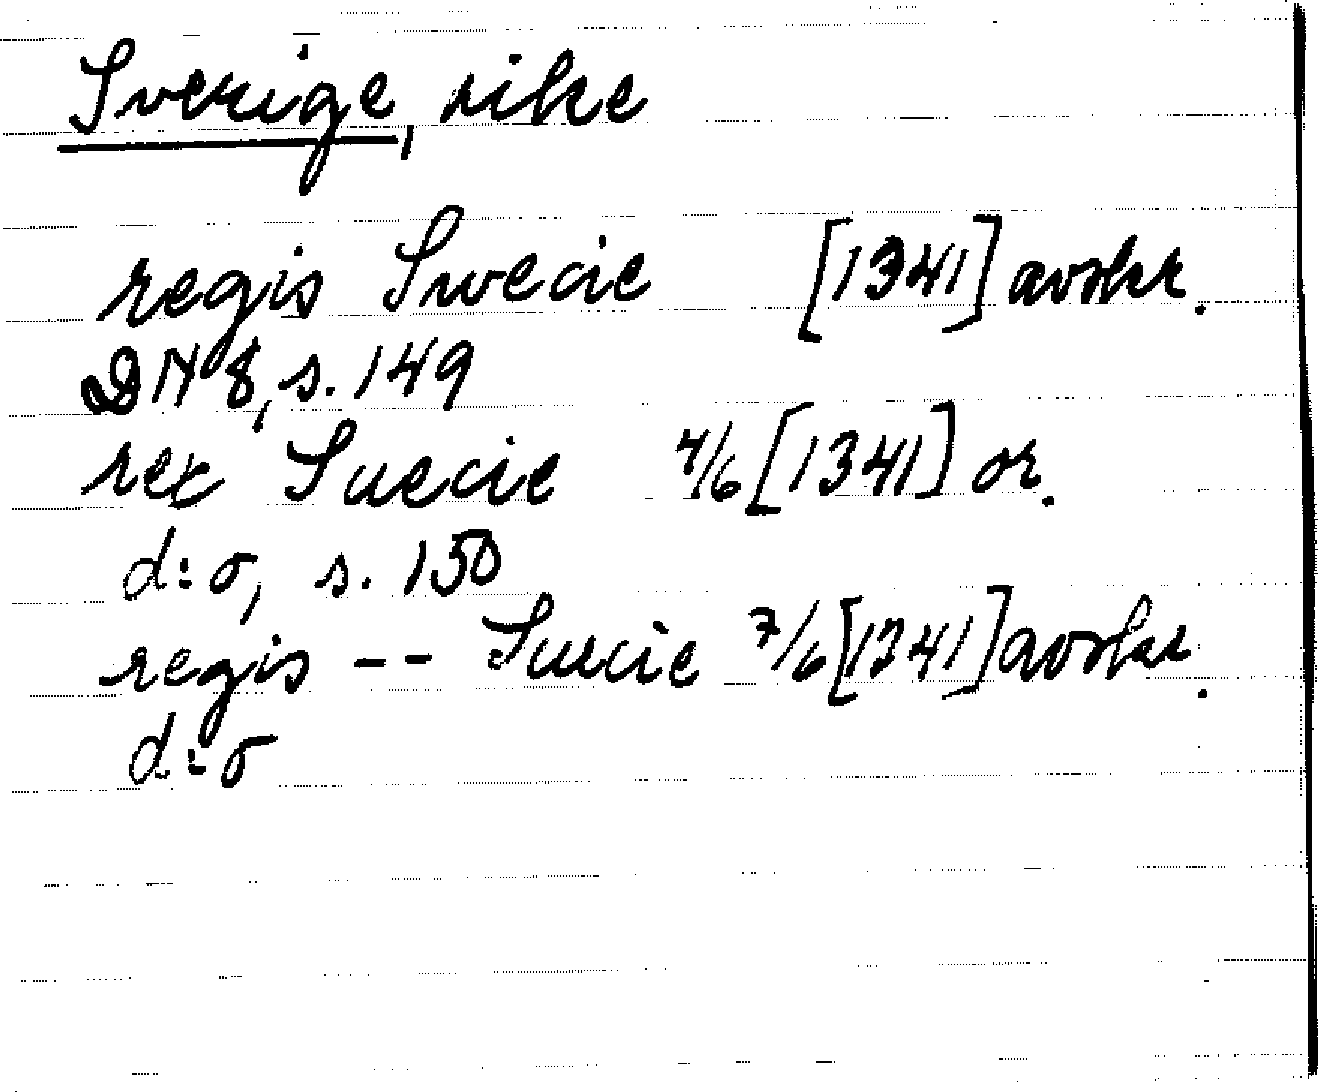 Sverige, rike
regis Swecie [1341] avskr.
DN 8, s. 149
rex Suecie 4/6 [1341] or.
d:o, s. 150
regis -- Suecie 7/6 [1341] avskr.
d:o